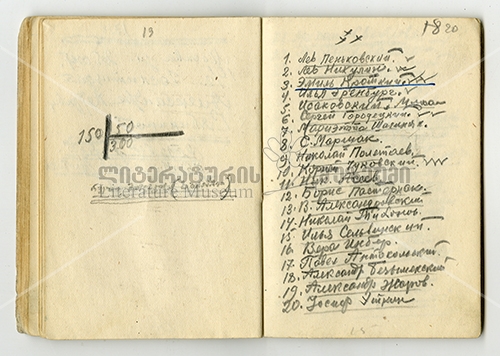 13
150 50
3.00
ლიტერატურის მუზეუმი
Literature Museum
18 20
1. Лев Пеньковский.
2. Лев Никулин.
3. Эмиль Кроткий.
4. Илья Эренбург.
5. Исаковский Миха
6. Сергей Городецкий.
7. Мариэтта Шагинян.
8. С. Маршак.
9. Николай Полетаев.
10. Корней Чуковский.
11. Ник. Асеев.
12. Борис Пастернак.
13. В. Александровский
17. Николай Тихонов.
15. Илья Сельвинский.
16. Вера Инбер.
17. Павел Антокольский.
18. Александр Безыменский
19. Александр Жаров.
20. Иосиф Уткин